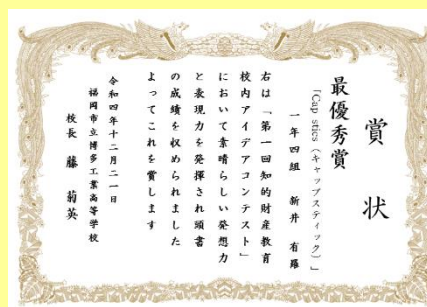 賞状
最優秀賞
「Cap stics（キャップスティック）」
一年四組　新井　有羅
右は「第一回知的財産教育
校内アイデアコンテスト」
において素晴らしい発想力
と表現力を発揮され頭書
の成績を収められました
よってこれを賞します
令和四年十二月二一日
福岡市立博多工業高等学校
校長　藤　菊英